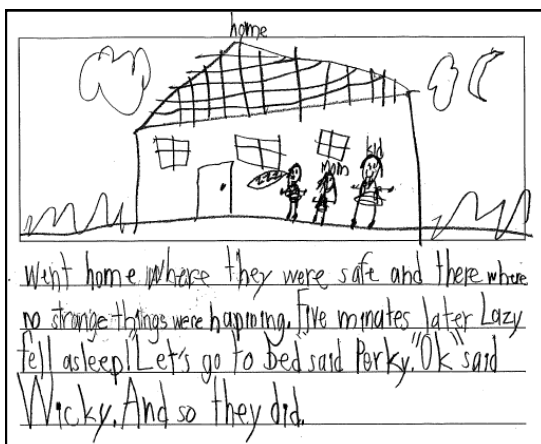 home
kid
mom
Went home where they were safe and there where
no strange things were hapining. Five minates later Lazy
fell asleep! "Let's go to bed" said Porky. "Ok" said
Wicky. And so they did.